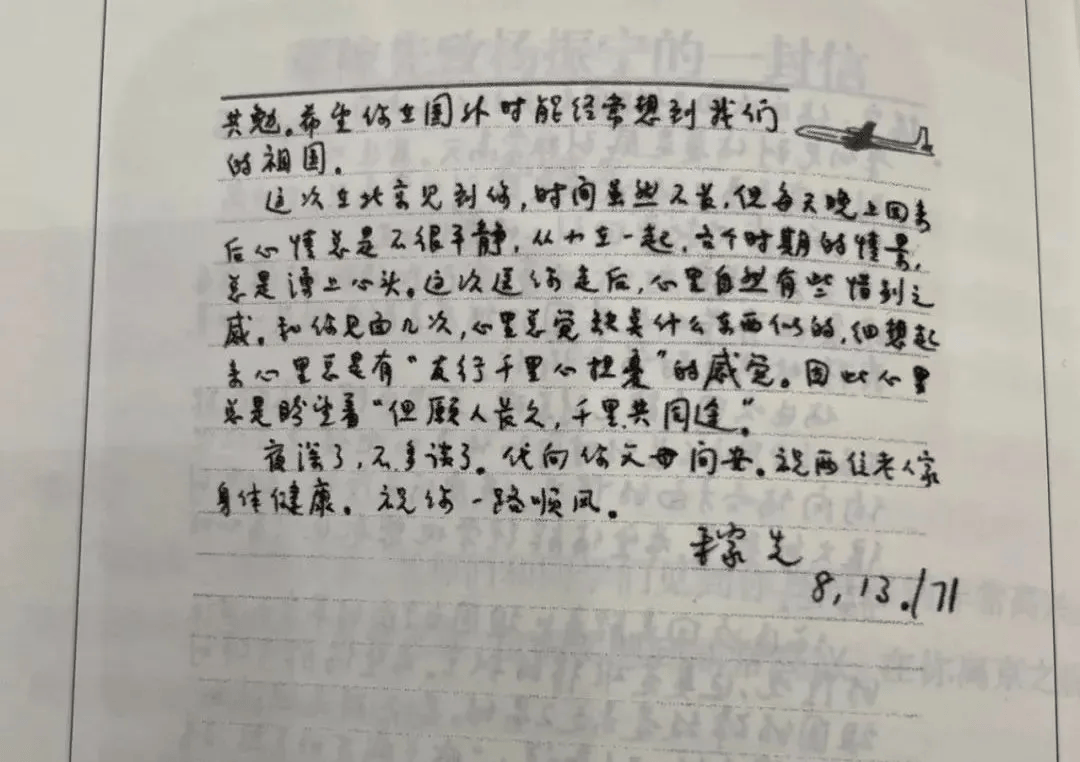 共勉。希望你在国外时能经常想到我们
的祖国。
这次在北京见到你，时间虽然不长，但每天晚上回来
后心情总是不很平静，从小在一起，各个时期的情景，
总是涌上心头。这次送你走后，心里自然有些惜别之
感。和你见面几次，心里总觉缺点什么东西似的，细想起
来心里总是有“友行千里心担忧”的感觉。因此心里
总是盼望着“但愿人长久，千里共同途。”
夜深了，不多谈了。代向你父母问安。祝两位老人家
身体健康。祝你一路顺风。
稼先
8,13./71
在你离京之